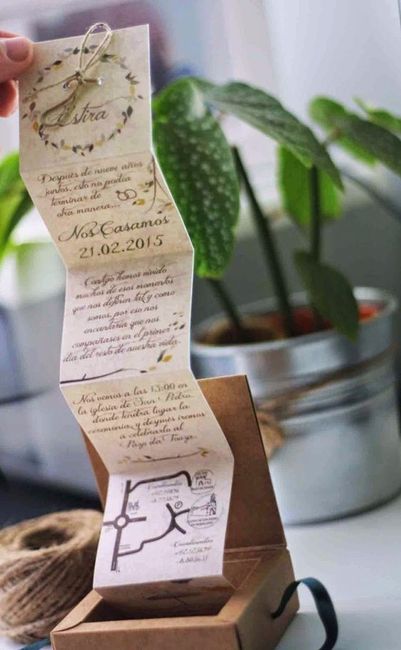 Estira
Después de nueve años
juntos, esto no podía
terminar de
otra manera...
Nos Casamos
21.02.2015
Contigo hemos vivido
muchos de esos momentos
que nos definen tal y como
somos, por eso nos
encantaría que nos
acompañases en el primer
día del resto de nuestra vida.
Nos vemos a las 13:00 en
la iglesia de San Pedro,
donde tendrá lugar la
ceremonia, y después iremos
a celebrarlo al
Pazo da Touza.
Coordenadas
Coordenadas